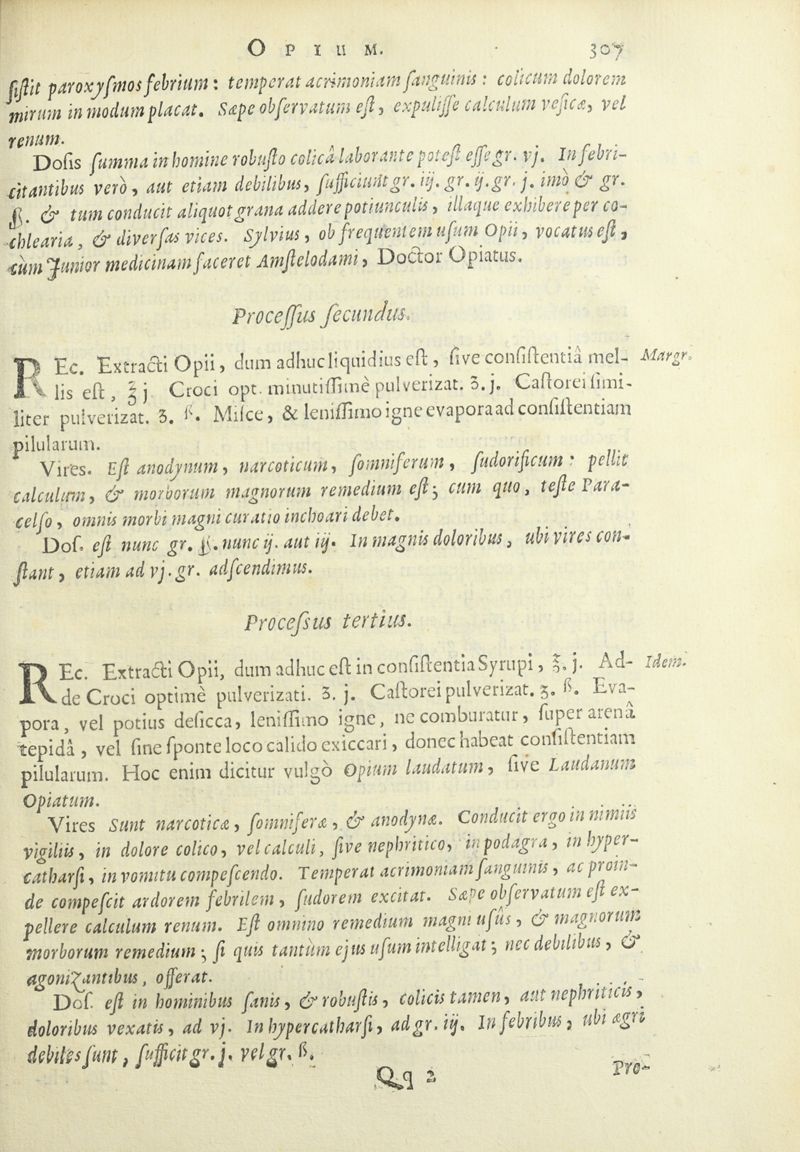 OPIUM. 307
ſiſtit paroxyſmos febrium: temperat acrimoniam ſanguinis: colicum dolorem
mirum in modum placat. Sæpe obſervatum eſt, expuliſſe calculum veſicæ, vel
renum.
Doſis ſumma in homine robuſto colicâ laborante poteſt eſſe gr. vj. In febri-
citantibus verò, aut etiam debilibus, ſufficiunt gr. iij. gr. ij. gr. j. imò & gr.
ß. & tum conducit aliquot grana addere potiunculis, illaque exhibere per co-
chlearia, & diverſas vices. Sylvius, ob frequentem uſum Opii, vocatus eſt,
cùm Junior medicinam faceret Amſtelodami, Doctor Opiatus.
Proceſſus ſecundus.
REc. Extracti Opii, dum adhuc liquidius eſt, ſive conſiſtentiâ mel- Margr.
lis eſt, ℥ j Croci opt. minutiſſimè pulverizat. ʒ. j. Caſtorei ſimi-
liter pulverizat. ʒ. ß. Miſce, & leniſſimo igne evapora ad conſiſtentiam
pilularum.
Vires. Eſt anodynum, narcoticum, ſomniferum, ſudorificum: pellit
calculum, & morborum magnorum remedium eſt; cum quo, teſte Para-
celſo, omnis morbi magni curatio inchoari debet.
Doſ. eſt nunc gr. ß. nunc ij. aut iij. In magnis doloribus, ubi vires con-
ſtant, etiam ad vj. gr. adſcendimus.
Proceſsus tertius.
REc. Extracti Opii, dum adhuc eſt in conſiſtentia Syrupi, ℥. j. Ad- Idem.
de Croci optimè pulverizati. ʒ. j. Caſtorei pulverizat. ʒ. ß. Eva-
pora, vel potius deſicca, leniſſimo igne, ne comburatur, ſuper arena
tepidâ, vel ſine ſponte loco calido exiccari, donec habeat conſiſtentiam
pilularum. Hoc enim dicitur vulgò Opium laudatum, ſive Laudanum
Opiatum.
Vires Sunt narcoticæ, ſomniferæ, & anodynæ. Conducit ergo in nimiis
vigiliis, in dolore colico, vel calculi, ſive nephritico, in podagra, in hyper-
catharſi, in vomitu compeſcendo. Temperat acrimoniam ſanguinis, ac proin-
de compeſcit ardorem febrilem, ſudorem excitat. Sæpe obſervatum eſt ex-
pellere calculum renum. Eſt omnino remedium magni uſûs, & magnorum
morborum remedium; ſi quis tantùm ejus uſum intelligat; nec debilibus, &
agonizantibus, offerat.
Doſ. eſt in hominibus ſanis, & robuſtis, colicis tamen, aut nephriticis,
doloribus vexatis, ad vj. In hypercatharſi, ad gr. iij. In febribus, ubi ægri
debiles ſunt, ſufficit gr. j. vel gr. ß.
Qq 2 Pro-